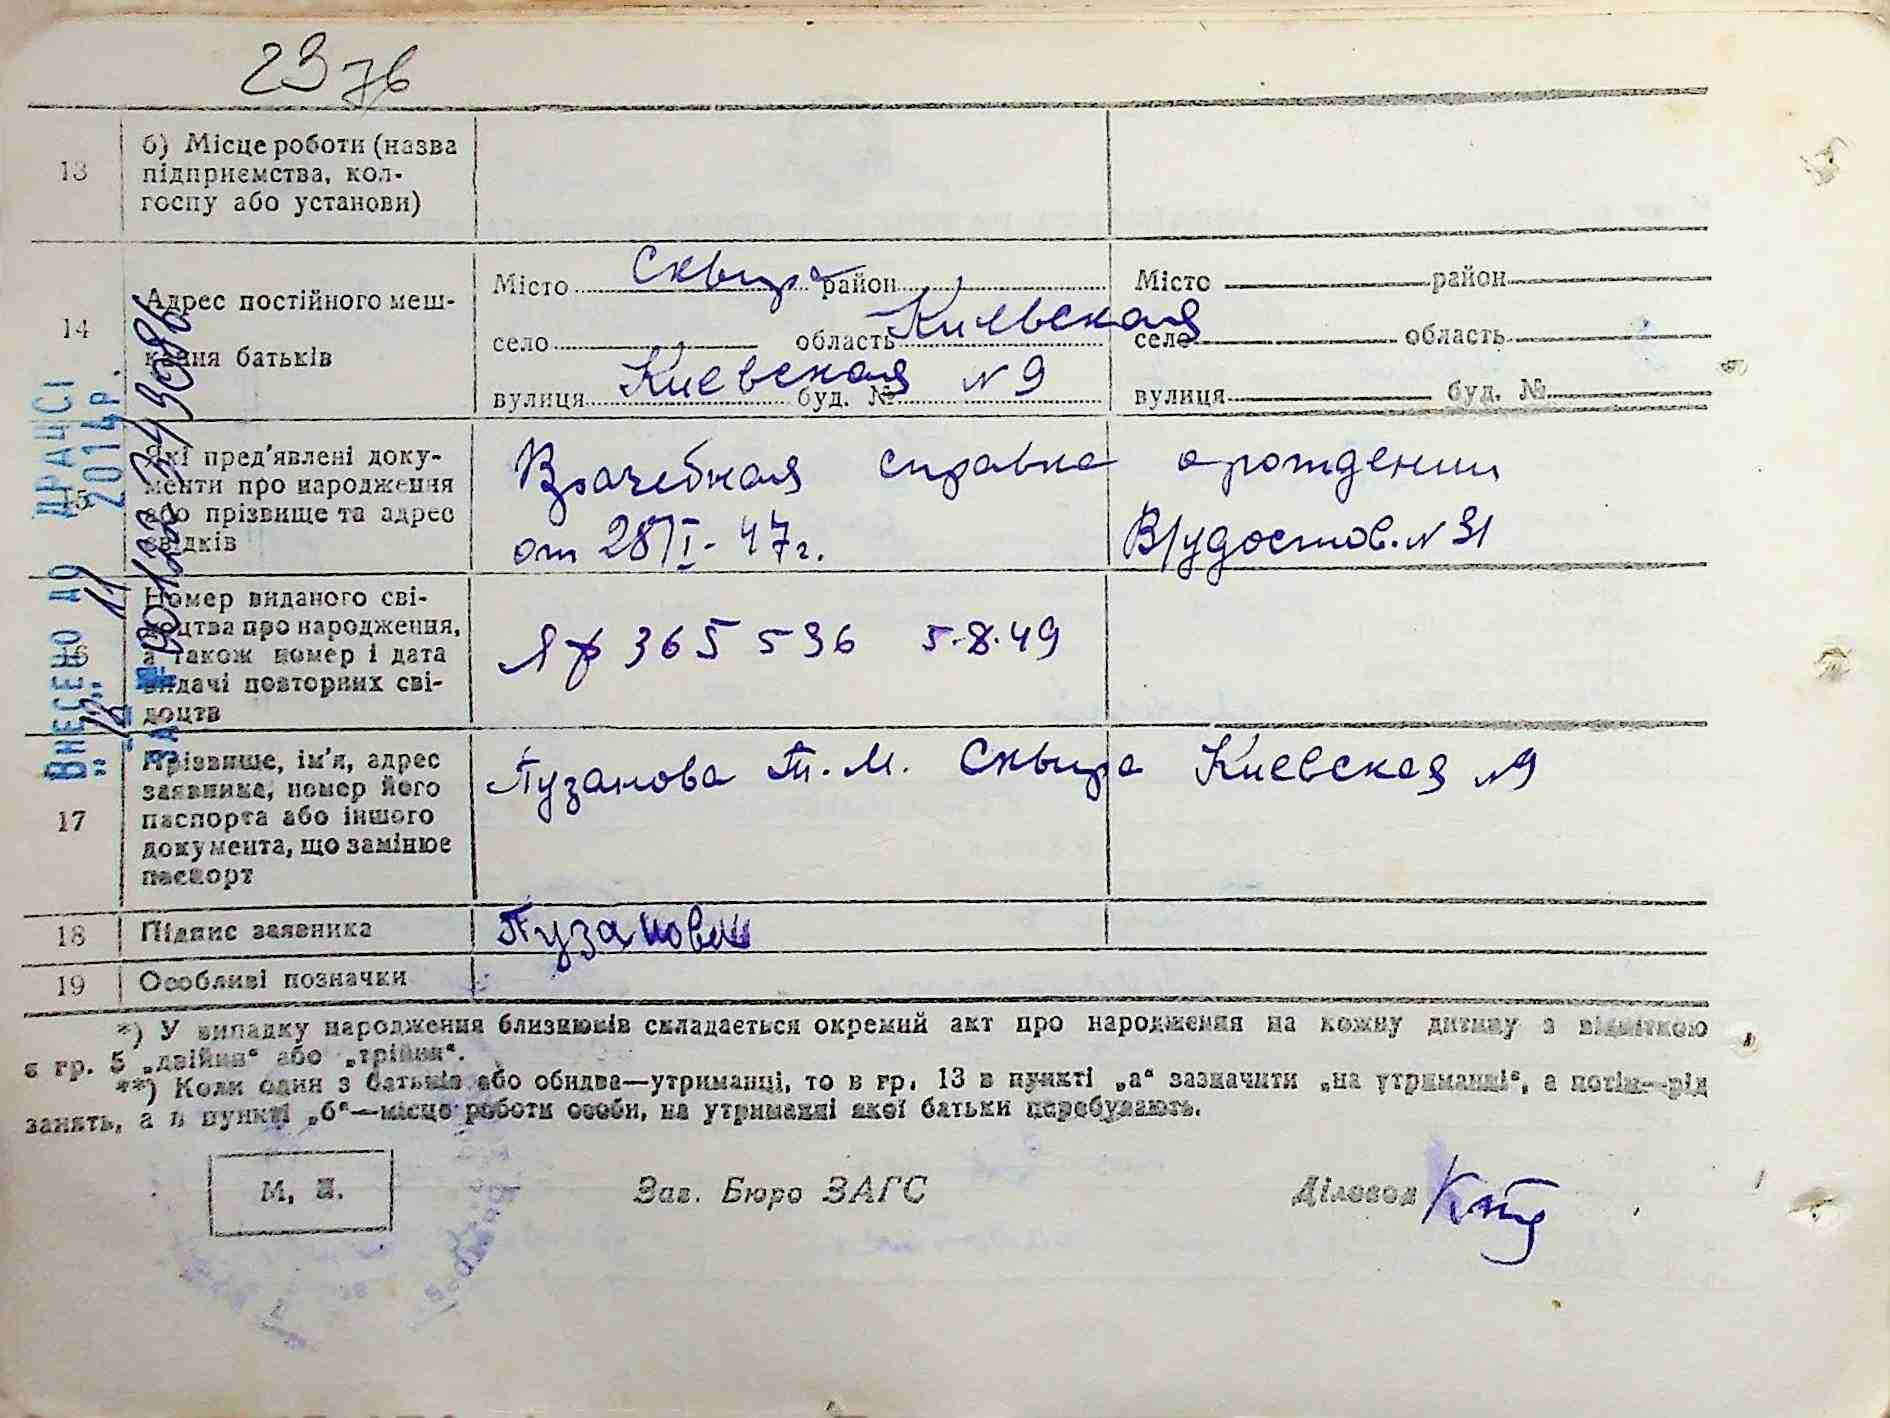 2376
13 б) Місце роботи (назва
підприємства, кол-
госпу або установи)
14 Адрес постійного меш-
кання батьків
Місто Сквира район
село область Киевская
вулиця Киевская буд. № №9
Місто район
село область
вулиця буд. №
15 Які пред'явлені доку-
менти про народження
або прізвище та адрес
свідків
Врачебная справка о рождении
от 28/I-47г. В/удостов. №31
16 Номер виданого сві-
доцтва про народження,
а також номер і дата
видачі повторних сві-
доцтв
365536 5.8.49
17 Прізвище, ім'я, адрес
заявника, номер його
паспорта або іншого
документа, що замінює
паспорт
Пузанова Т.М. Сквира Киевская №9
18 Підпис заявника
Пузанова
19 Особливі позначки
*) У випадку народження близнюків складається окремий акт про народження на кожну дитину з відміткою
в гр. 5 „двійня“ або „трійня“.
**) Коли один з батьків або обидва—утриманці, то в гр. 13 в пункті „а“ зазначити „на утриманні“, а потім—рід
занять, а в пункті „б“—місце роботи особи, на утриманні якої батьки перебувають.
М. П.
Зав. Бюро ЗАГС
Діловод
ВНЕСЕНО ДО ДРАЦСІ
„12“ 11 2014р.
ЗА №